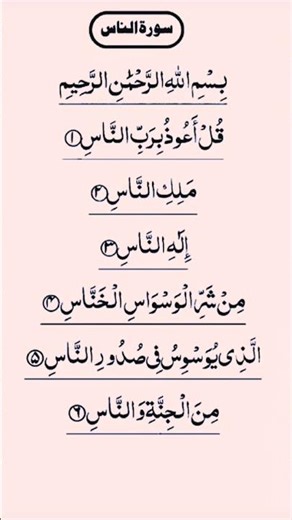 سورة الناس
بِسْمِ اللهِ الرَّحْمٰنِ الرَّحِيْمِ
قُلْ أَعُوذُ بِرَبِّ النَّاسِ ۝١
مَلِكِ النَّاسِ ۝۲
إِلٰهِ النَّاسِ ۝۳
مِنْ شَرِّ الْوَسْوَاسِ الْخَنَّاسِ ۝۴
الَّذِى يُوَسْوِسُ فِى صُدُورِ النَّاسِ ۝۵
مِنَ الْجِنَّةِ وَالنَّاسِ ۝۶